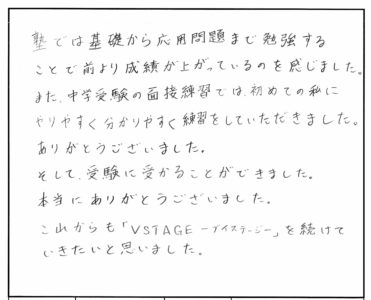 塾では基礎から応用問題まで勉強する
ことで前より成績が上がっているのを感じました。
また、中学受験の面接練習では、初めての私に
やりやすく分かりやすく練習をしていただきました。
ありがとうございました。
そして、受験に受かることができました。
本当にありがとうございました。
これからも「VSTAGE －ブイステージ－」を続けて
いきたいと思いました。